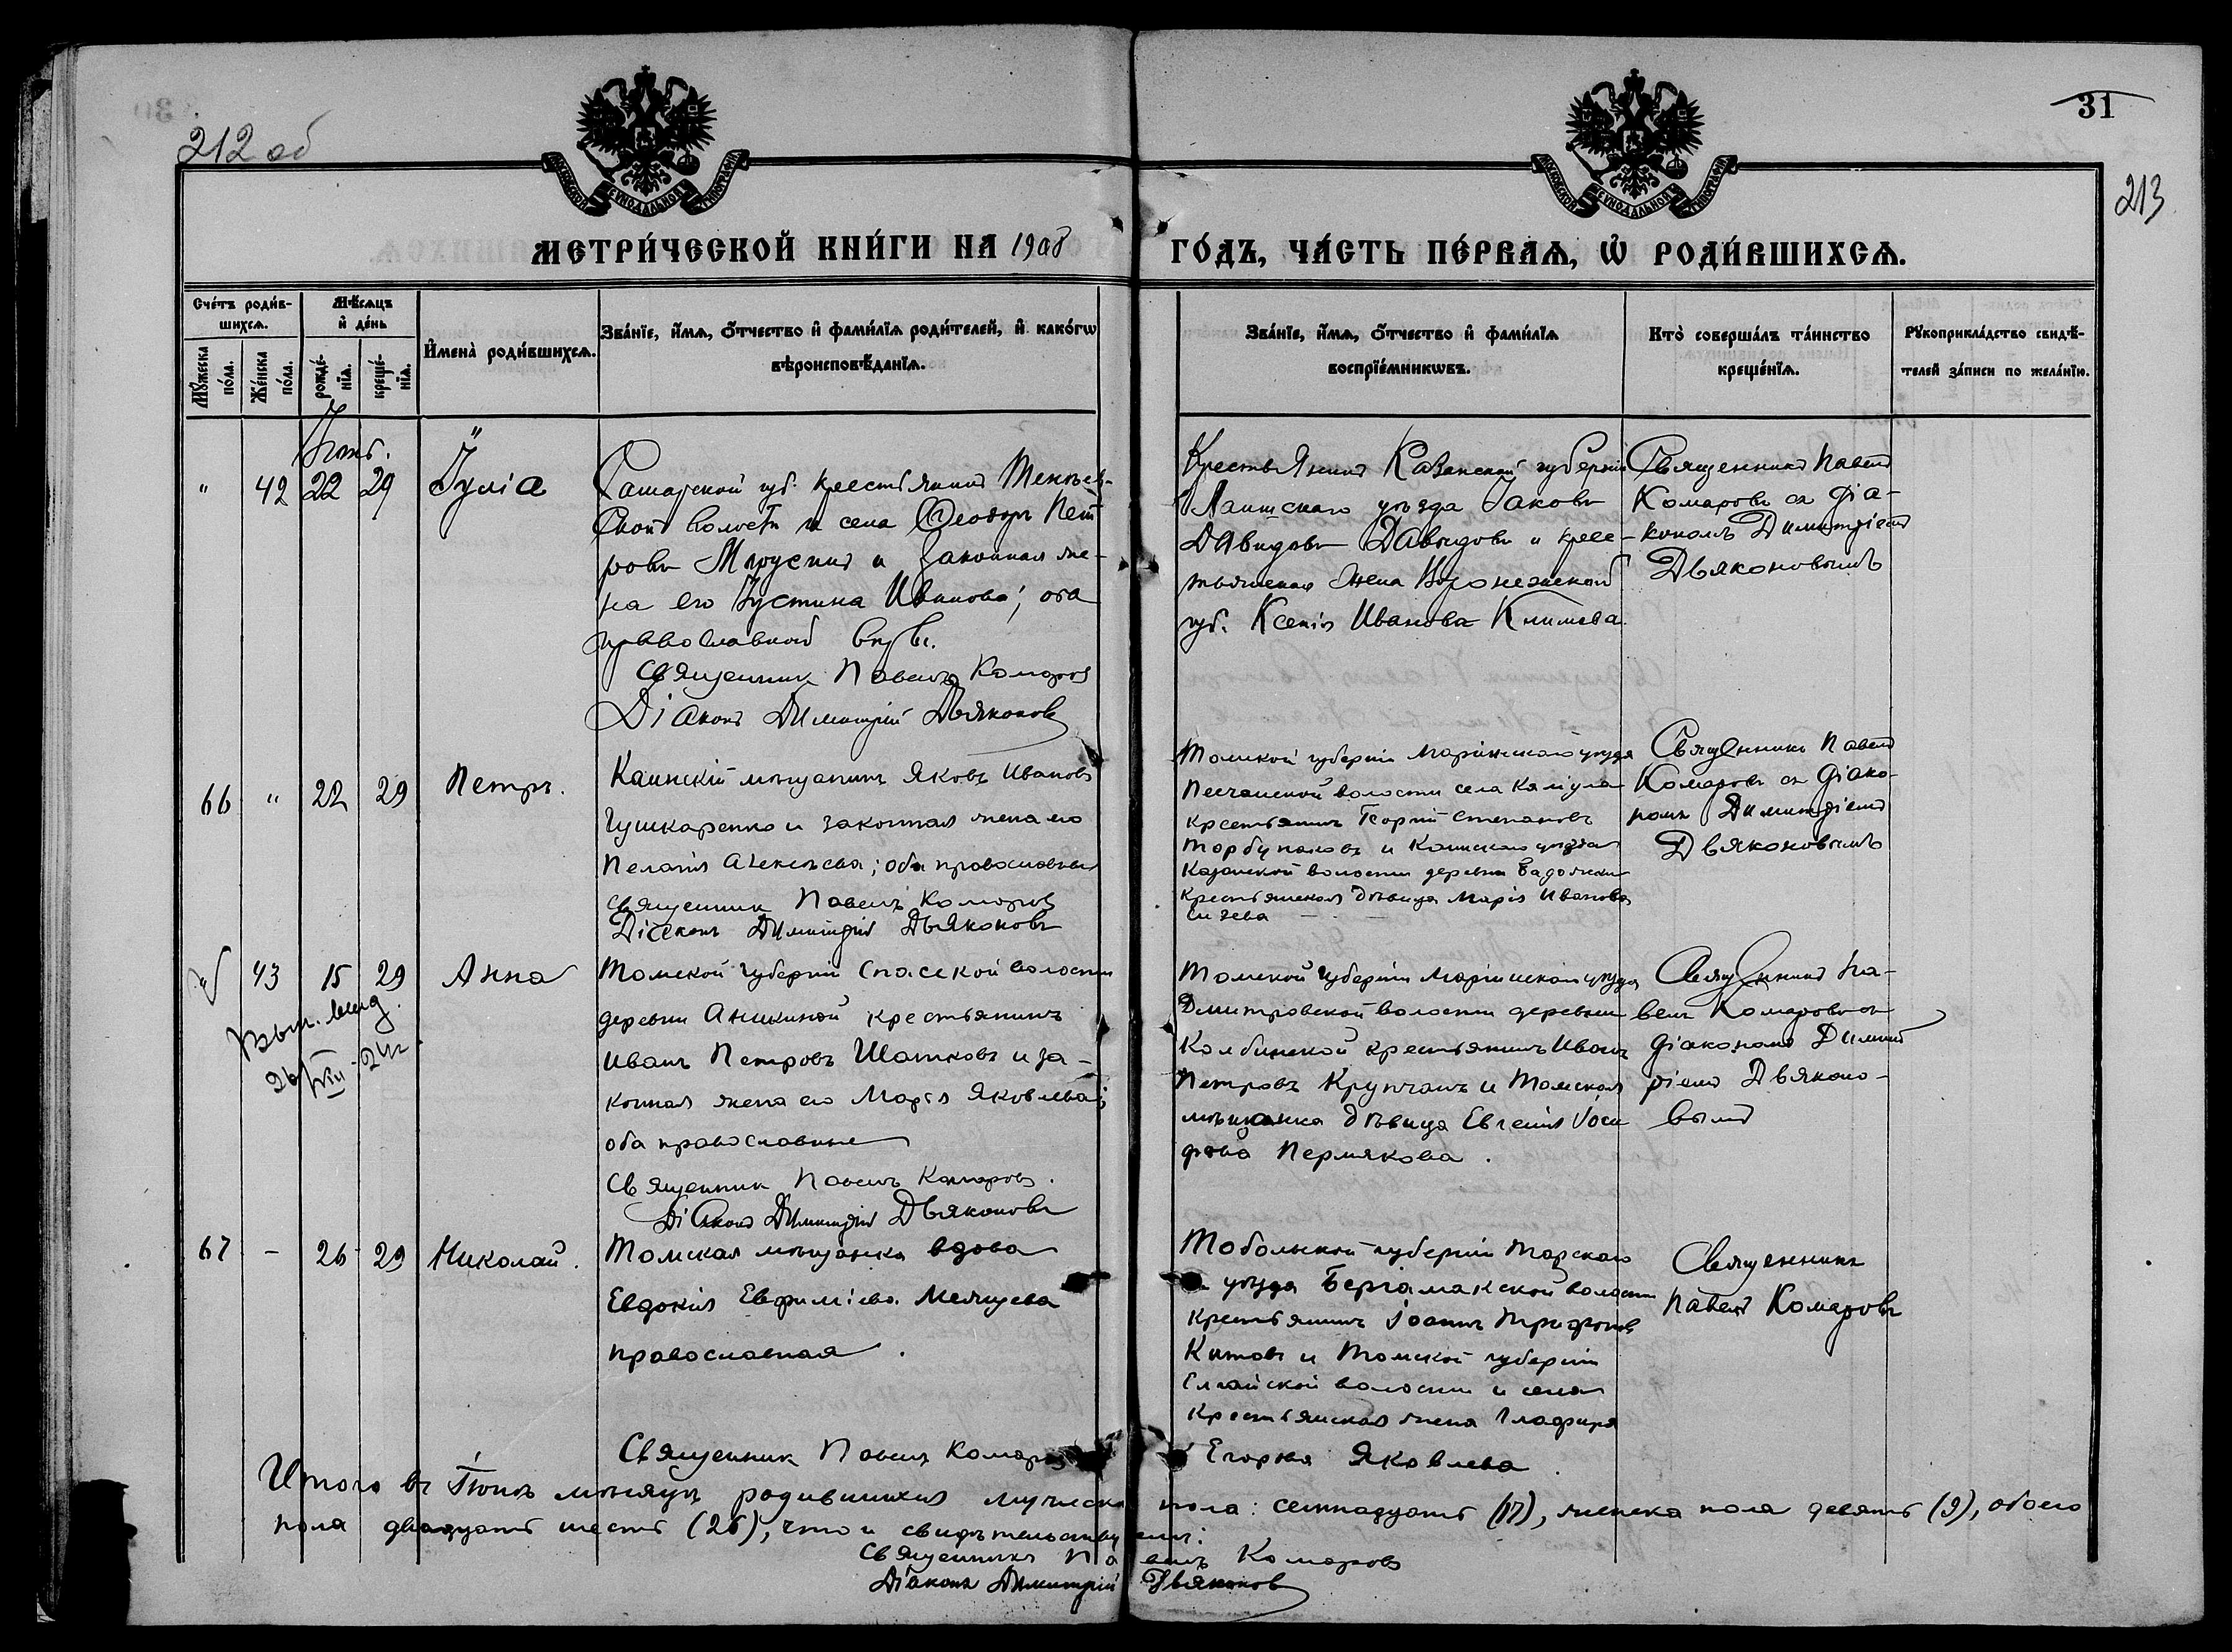 31
212 об
213
МОСКОВСКОЙ СѴНОДАЛЬНОЙ ТИПОГРАФІИ
МОСКОВСКОЙ СѴНОДАЛЬНОЙ ТИПОГРАФІИ
МЕТРИ́ЧЕСКОЙ КНИ́ГИ НА 1908 ГО́ДЪ, ЧА́СТЬ ПЕ́РВАѦ, Ѡ҆ РОДИ́ВШИХСѦ.
Сче́тъ роди́в-
шихсѧ.
Мꙋ́жеска по́ла.
Же́нска по́ла.
Мѣ́сѧцъ
и҆ де́нь
рожде́-
нїѧ.
креще́-
нїѧ.
И҆мена̀ роди́вшихсѧ.
Зва́нїе, и҆́мѧ, ѻ҆́тчество и҆ фами́лїѧ роди́телей, и҆ како́гѡ
вѣроисповѣ́данїѧ.
Зва́нїе, и҆́мѧ, ѻ҆́тчество и҆ фами́лїѧ
воспрїе́мникѡвъ.
Кто̀ соверша́лъ та́инство
креще́нїѧ.
Рꙋкоприкла́дство свидѣ́-
телей за́писи по жела́нїю.
Іюнь.
" 42 22 29 Іулія
губ. крестьянинъ
волости и села Ѳеодоръ Пет-
ровъ и законная же-
на его Іустина Иванова; оба
православной вѣры.
Священникъ Павелъ Комаровъ
Діаконъ Димитрій Дьяконовъ
Крестьянинъ Казанской губерніи
Лаишскаго уѣзда Іаковъ
Давидовъ Давыдовъ и крес-
тьянская жена Воронежской
губ. Ксенія Иванова
Священникъ Павелъ
Комаровъ съ діа-
кономъ Димитріемъ
Дьяконовымъ
66 " 22 29 Петръ.
Каинскій мѣщанинъ Яковъ Ивановъ
Гушкаренко и законная жена его
Пелагія Алексѣева; оба православные
Священникъ Павелъ Комаровъ
Діаконъ Димитрій Дьяконовъ
Томской губерніи Маріинскаго уѣзда
Песчанской волости села
крестьянинъ Георгій Степановъ
Торбунаковъ и Каинскаго уѣзда
Казанской волости деревни
крестьянская дѣвица Марія Иванова
Сизева
Священникъ Павелъ
Комаровъ съ діако-
номъ Димитріемъ
Дьяконовымъ
43 15 29 Анна
Томской губерніи Спасской волости
деревни Аникиной крестьянинъ
Иванъ Петровъ Шатковъ и за-
конная жена его Марія Яковлева;
оба православные
Священникъ Павелъ Комаровъ.
Діаконъ Димитрій Дьяконовъ
Томской губерніи Маріинскаго уѣзда
Дмитровской волости деревни
Колбинской крестьянинъ Иванъ
Петровъ Крупчанъ и Томская
мѣщанка дѣвица Евгенія Іоси-
фова Пермякова.
Священникъ Па-
велъ Комаровъ съ
діакономъ Димит-
ріемъ Дьяконо-
вымъ
26/XII-24г.
67 - 26 29 Николай.
Томская мѣщанка вдова
Евдокія Евфиміева Мелящева
православная.
Священникъ Павелъ Комаровъ
Тобольской губерніи Тарскаго
уѣзда Бергамакской волости
крестьянинъ Іоаннъ Трифоновъ
Китовъ и Томской губерніи
Елгайской волости и села
крестьянская жена Глафира
Егорова Яковлева.
Священникъ
Павелъ Комаровъ
Итого въ Іюнѣ мѣсяцѣ родившихся мужеска пола: семнадцать (17), женска пола девять (9), обоего
пола двадцать шесть (26), что и свидѣтельствуемъ:
Священникъ Павелъ Комаровъ
Діаконъ Димитрій Дьяконовъ